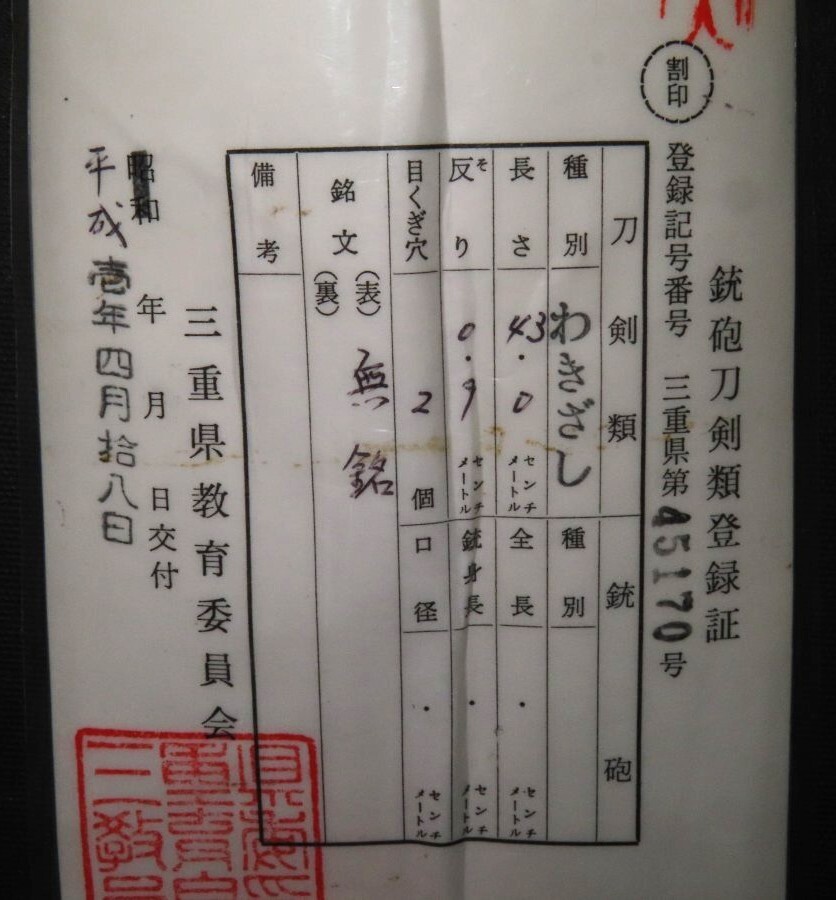 銃砲刀剣類登録証
割印
登録記号番号 三重県第45170号
刀剣類
銃砲
種別 わきざし
種別
長さ 43.0 センチメートル
全長 ・ センチメートル
反り そ 0.9 センチメートル
銃身長 ・ センチメートル
目くぎ穴 2個
口径 ・ センチメートル
銘文 (表) 無銘
(裏)
備考
三重県教育委員会
昭和 年 月 日交付
平成壱年四月拾八日